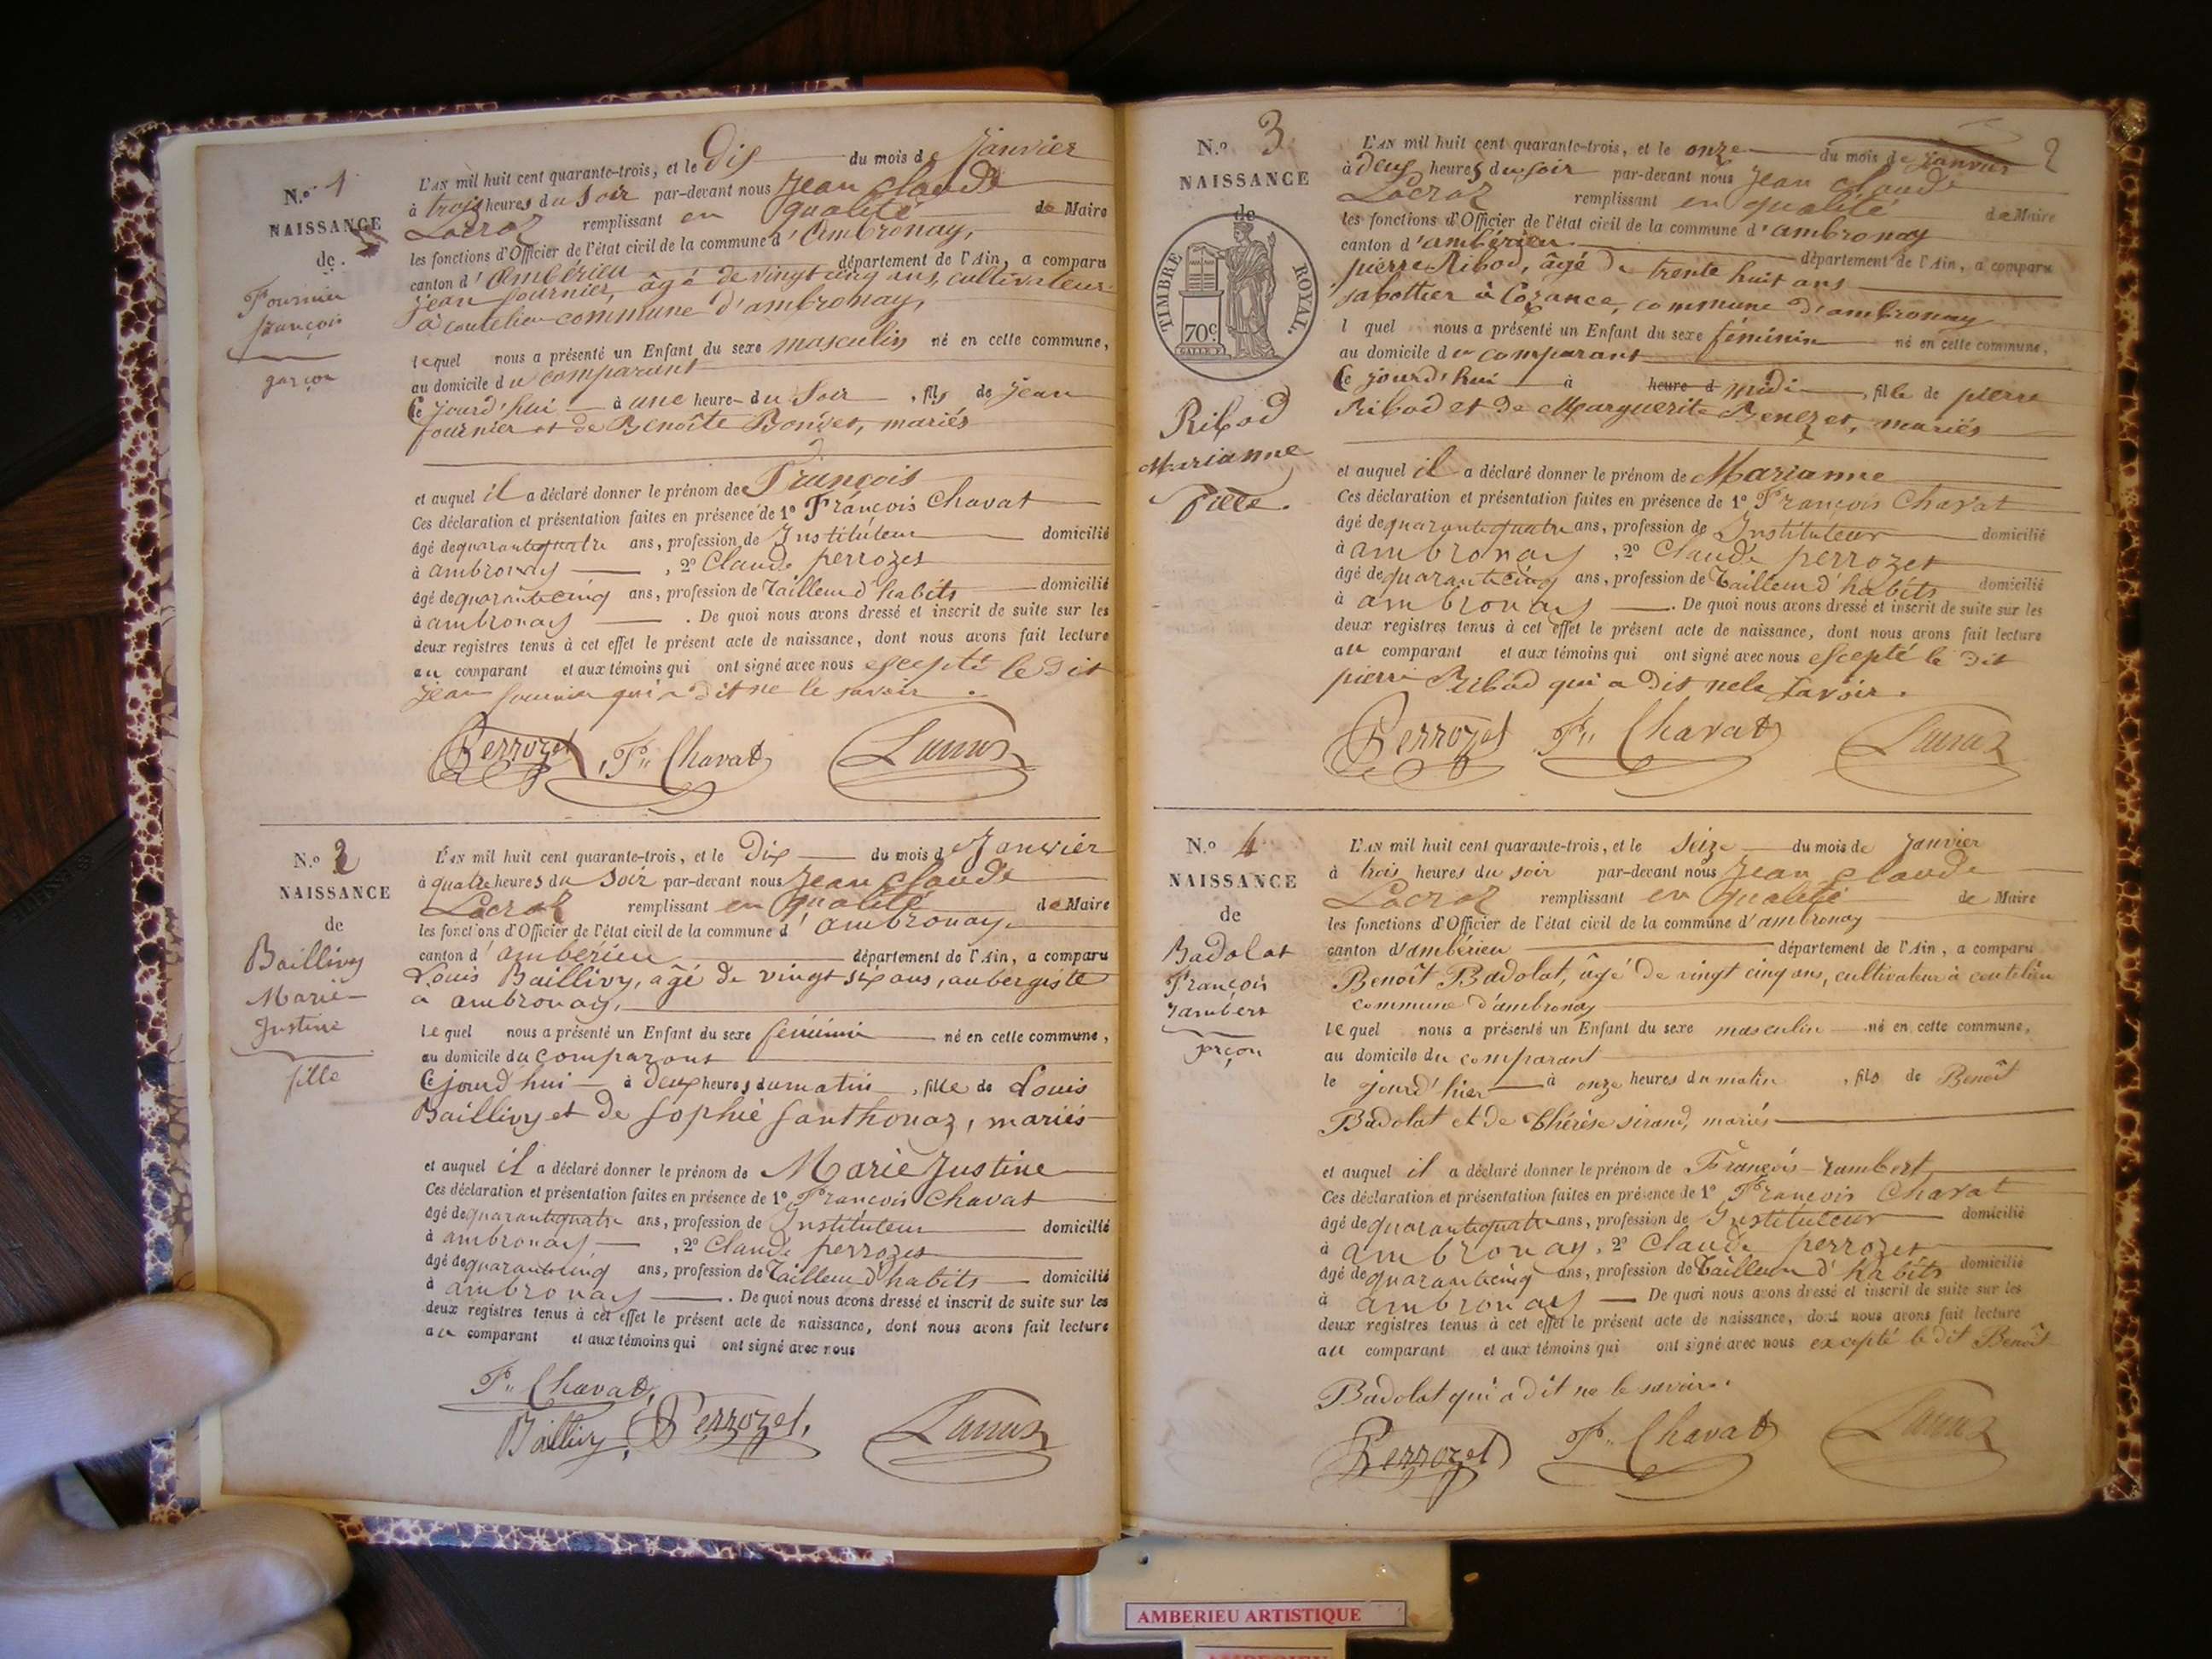 N.º 1
NAISSANCE
de
Fournier
françois
garçon
L'AN mil huit cent quarante-trois, et le Dix du mois de Janvier
à trois heures du Soir par-devant nous Jean Claude
Lacroz remplissant en qualité de Maire
les fonctions d'Officier de l'état civil de la commune d'Ambronay,
canton d'Ambérieu département de l'Ain, a comparu
Jean fournier, âgé de vingt cinq ans, cultivateur
à coutelieu commune d'ambronay,
lequel nous a présenté un Enfant du sexe masculin né en cette commune,
au domicile du comparant
Ce jourd'hui à une heure du Soir, fils de Jean
fournier et de Benoîte Bonnet, mariés
et auquel il a déclaré donner le prénom de François
Ces déclaration et présentation faites en présence de 1º François Chavat
âgé de quarante quatre ans, profession de Instituteur domicilié
à ambronay, 2º Claude perrozet
âgé de quarante cinq ans, profession de Tailleur d'habits domicilié
à ambronay. De quoi nous avons dressé et inscrit de suite sur les
deux registres tenus à cet effet le présent acte de naissance, dont nous avons fait lecture
au comparant et aux témoins qui ont signé avec nous excepté le dit
Jean fournier qui a dit ne le savoir.
Perrozet, Fs Chavat
N.º 2
NAISSANCE
de
Baillivy
Marie
Justine
fille
L'AN mil huit cent quarante-trois, et le Dix du mois de Janvier
à quatre heures du Soir par-devant nous Jean Claude
Lacroz remplissant en qualité de Maire
les fonctions d'Officier de l'état civil de la commune d'ambronay
canton d'ambérieu département de l'Ain, a comparu
Louis Baillivy, âgé de vingt six ans, aubergiste
à ambronay,
lequel nous a présenté un Enfant du sexe féminin né en cette commune,
au domicile du comparant
Ce jourd'hui à deux heures du matin, fille de Louis
Baillivy et de Sophie Santhonaz, mariés
et auquel il a déclaré donner le prénom de Marie Justine
Ces déclaration et présentation faites en présence de 1º François Chavat
âgé de quarante quatre ans, profession de Instituteur domicilié
à ambronay, 2º Claude perrozet
âgé de quarante cinq ans, profession de Tailleur d'habits domicilié
à ambronay. De quoi nous avons dressé et inscrit de suite sur les
deux registres tenus à cet effet le présent acte de naissance, dont nous avons fait lecture
au comparant et aux témoins qui ont signé avec nous
Fs Chavat,
Baillivy, Perrozet,
2
N.º 3
NAISSANCE
de
TIMBRE ROYAL.
70c
Ribod
Marianne
fille.
L'AN mil huit cent quarante-trois, et le onze du mois de Janvier
à deux heures du soir par-devant nous Jean Claude
Lacroz remplissant en qualité de Maire
les fonctions d'Officier de l'état civil de la commune d'ambronay
canton d'ambérieu département de l'Ain, a comparu
pierre Ribod, âgé de trente huit ans
sabottier à Cozance, commune d'ambronay
l quel nous a présenté un Enfant du sexe féminin né en cette commune,
au domicile du comparant
Ce jourd'hui à heure d midi, fille de pierre
Ribod et de Marguerite Benezet, mariés
et auquel il a déclaré donner le prénom de Marianne
Ces déclaration et présentation faites en présence de 1º François Chavat
âgé de quarante quatre ans, profession de Instituteur domicilié
à ambronay, 2º Claude perrozet
âgé de quarante cinq ans, profession de Tailleur d'habits domicilié
à ambronay. De quoi nous avons dressé et inscrit de suite sur les
deux registres tenus à cet effet le présent acte de naissance, dont nous avons fait lecture
au comparant et aux témoins qui ont signé avec nous excepté le dit
pierre Ribod qui a dit ne le savoir.
Perrozet Fs Chavat
N.º 4
NAISSANCE
de
Badolat
François
Jambert
garçon
L'AN mil huit cent quarante-trois, et le seize du mois de Janvier
à trois heures du soir par-devant nous Jean Claude
Lacroz remplissant en qualité de Maire
les fonctions d'Officier de l'état civil de la commune d'ambronay
canton d'ambérieu département de l'Ain, a comparu
Benoît Badolat, âgé de vingt cinq ans, cultivateur à coutelieu
commune d'ambronay
lequel nous a présenté un Enfant du sexe masculin né en cette commune,
au domicile du comparant
le jourd'hier à onze heures du matin, fils de Benoît
Badolat et de Thérèse Sirand, mariés
et auquel il a déclaré donner le prénom de François-Jambert
Ces déclaration et présentation faites en présence de 1º François Chavat
âgé de quarante quatre ans, profession de Instituteur domicilié
à ambronay, 2º Claude perrozet
âgé de quarante cinq ans, profession de Tailleur d'habits domicilié
à ambronay De quoi nous avons dressé et inscrit de suite sur les
deux registres tenus à cet effet le présent acte de naissance, dont nous avons fait lecture
au comparant et aux témoins qui ont signé avec nous excepté le dit Benoît
Badolat qui a dit ne le savoir.
Perrozet Fs Chavat
AMBERIEU ARTISTIQUE